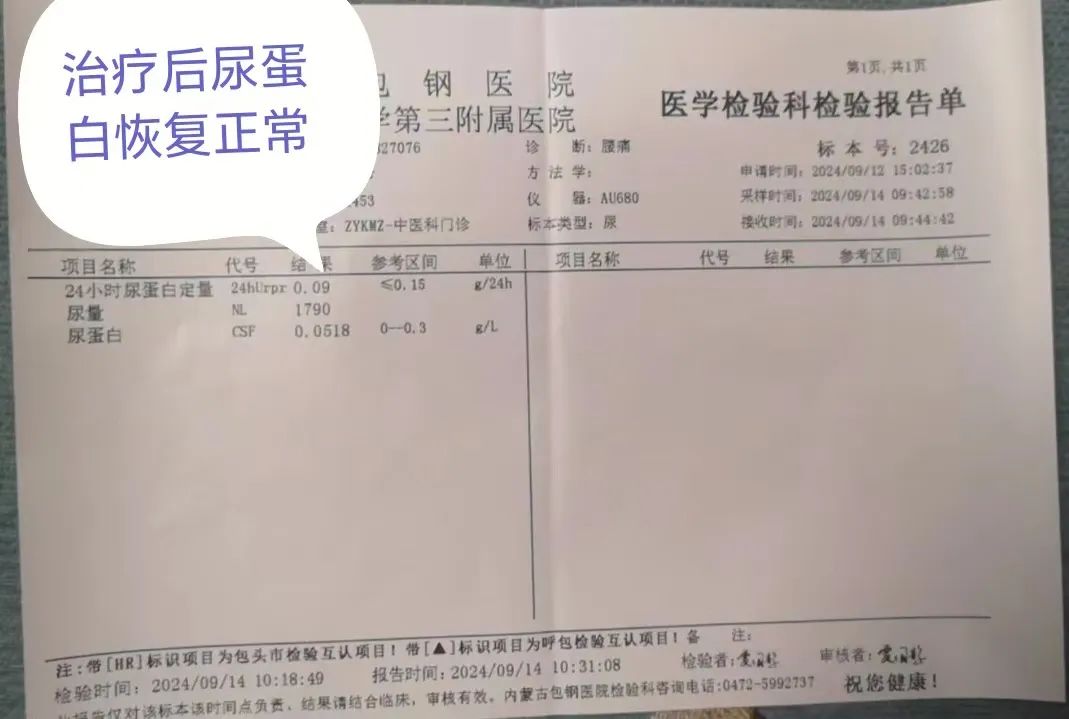 治疗后尿蛋
白恢复正常
钢医院
第三附属医院
第1页,共1页
医学检验科检验报告单
27076
诊 断：腰痛
标本号：2426
方法学：
申请时间：2024/09/12 15:02:37
453
仪 器：AU680
采样时间：2024/09/14 09:42:58
ZYKMZ-中医科门诊
标本类型：尿
接收时间：2024/09/14 09:44:42
项目名称 代号 结果 参考区间 单位 项目名称 代号 结果 参考区间 单位
24小时尿蛋白定量 24hUrpr 0.09 ≤0.15 g/24h
尿量 NL 1790
尿蛋白 CSF 0.0518 0--0.3 g/L
注：带[HR]标识项目为包头市检验互认项目！带[▲]标识项目为呼包检验互认项目！备 注：
检验时间：2024/09/14 10:18:49 报告时间：2024/09/14 10:31:08 检验者： 审核者：
报告仅对该标本该时间点负责、结果请结合临床，审核有效。内蒙古包钢医院检验科咨询电话:0472-5992737 祝您健康！